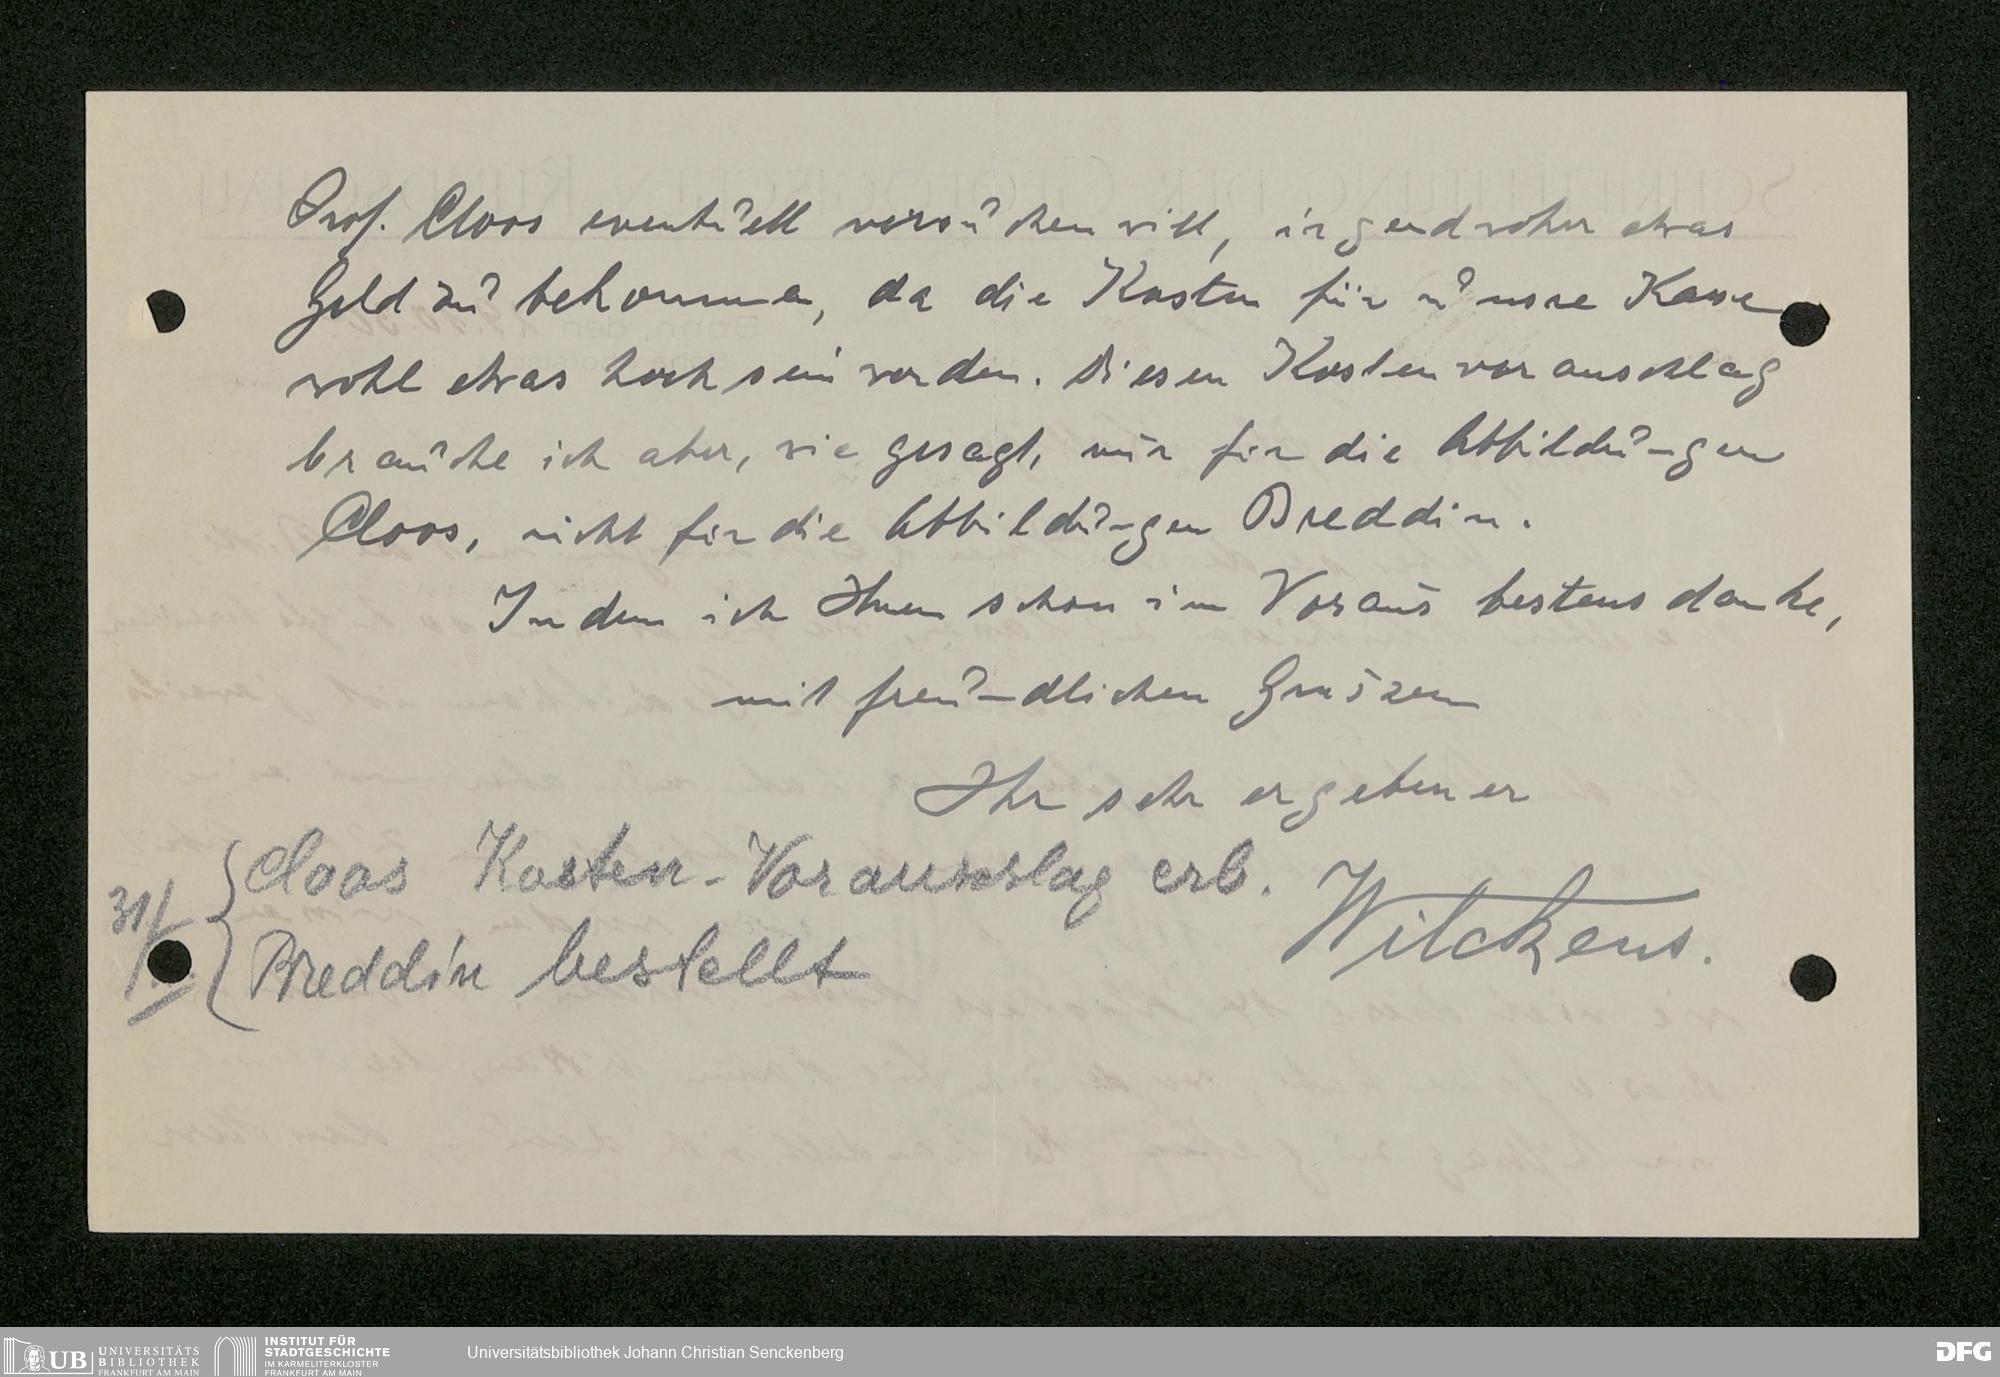 Prof. Cloos eventuell versuchen will, irgendwoher etwas
Geld zu bekommen, da die Kosten für unsre Kasse
wohl etwas hoch sein werden. Diesen Kostenvoranschlag
brauche ich aber, wie gesagt, nur für die Abbildungen
Cloos, nicht für die Abbildungen Breddin.
Indem ich Ihnen schon im Voraus bestens danke,
mit freundlichen Grüszen
Ihr sehr ergebener
Wilckens.
Cloos Kosten-Voranschlag erb.
31/
Breddin bestellt
UB UNIVERSITÄTS
BIBLIOTHEK
FRANKFURT AM MAIN
INSTITUT FÜR
STADTGESCHICHTE
IM KARMELITERKLOSTER
FRANKFURT AM MAIN
Universitätsbibliothek Johann Christian Senckenberg
DFG